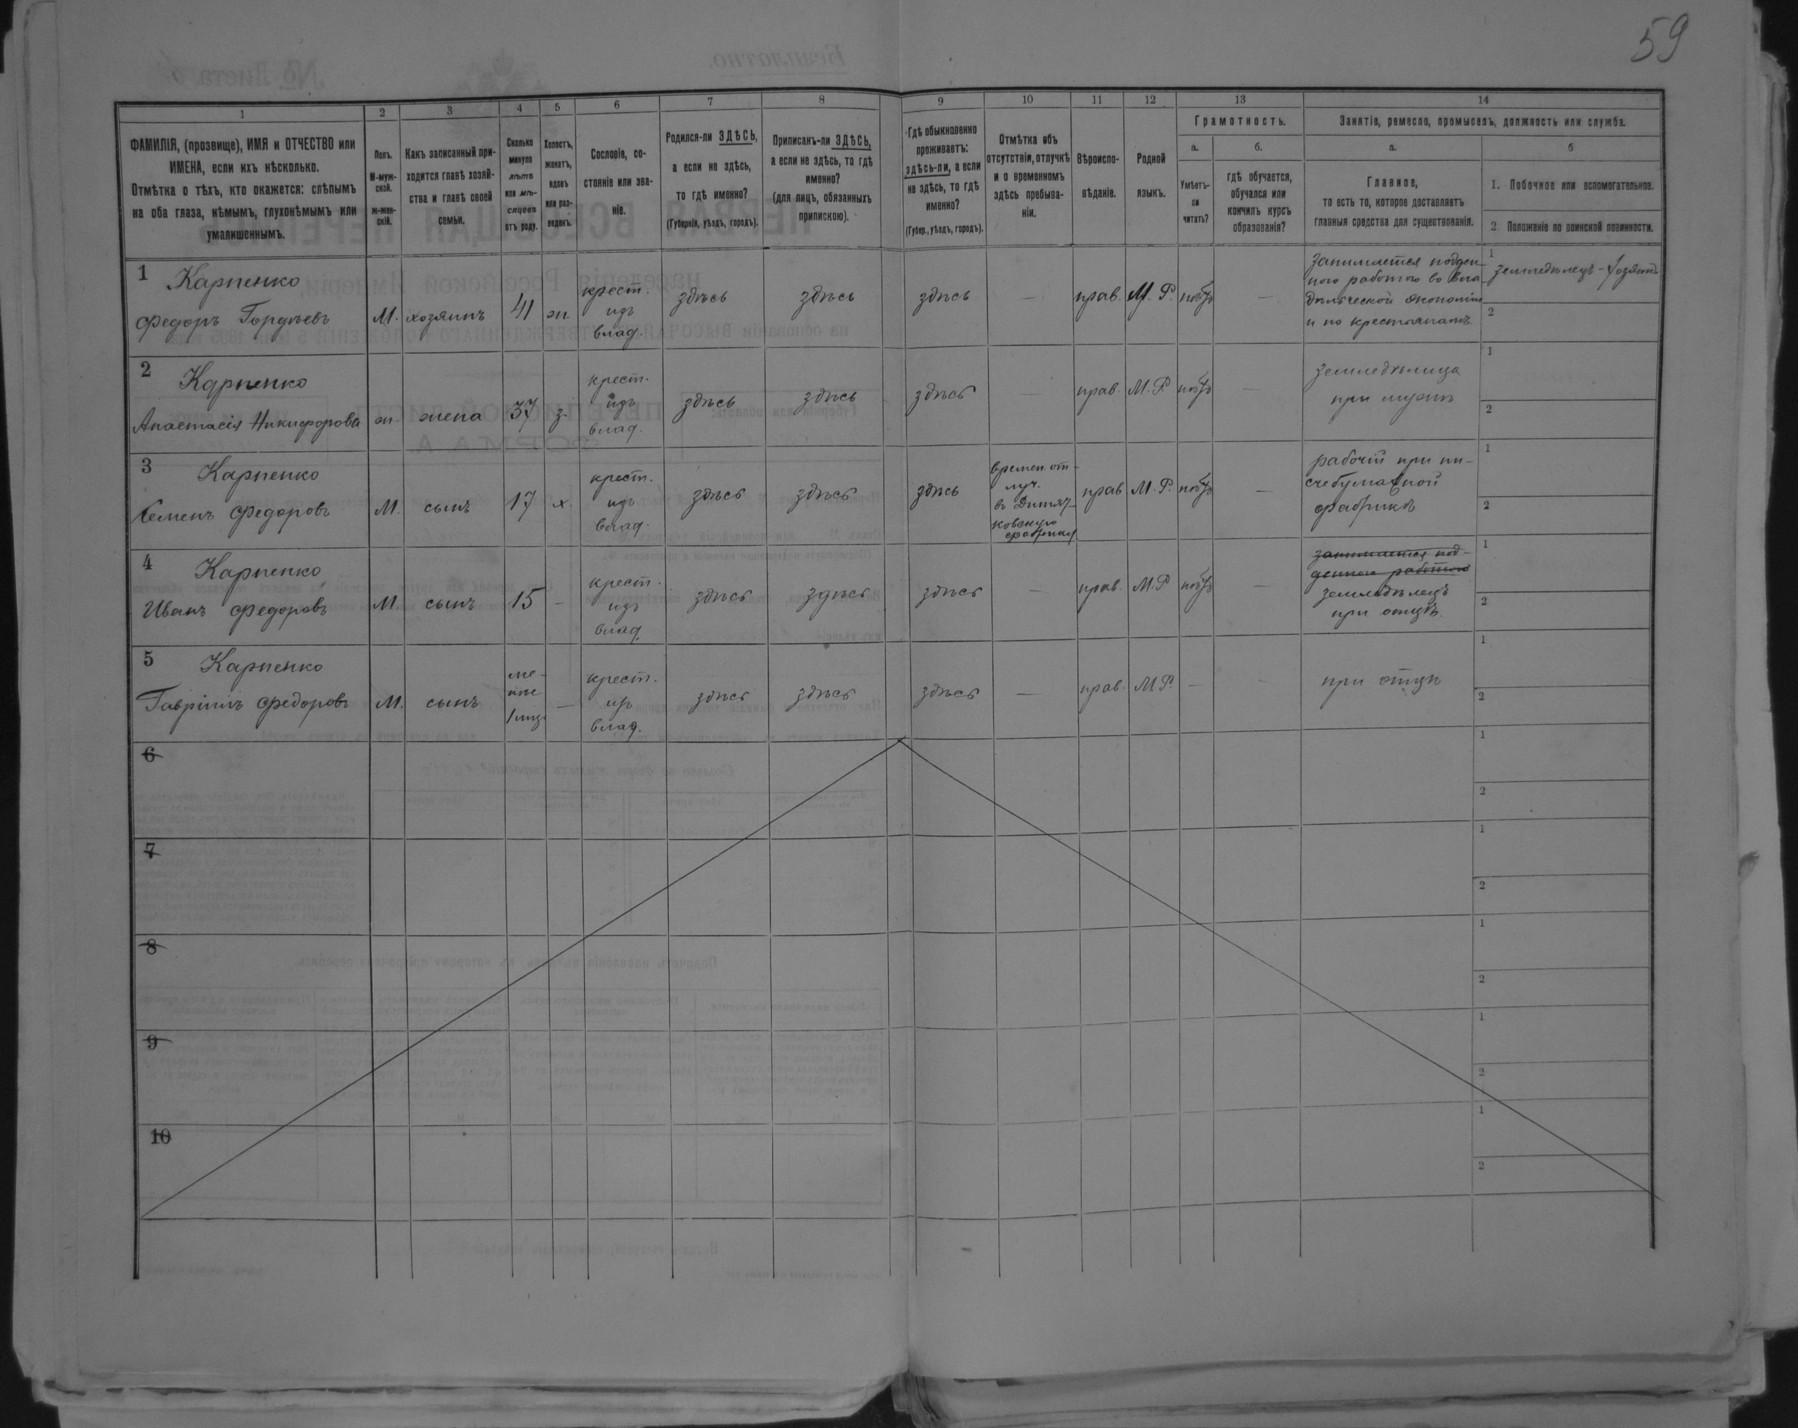 59
1
2
3
4
5
6
7
8
9
10
11
12
13
14
ФАМИЛІЯ, (прозвище), ИМЯ и ОТЧЕСТВО или
ИМЕНА, если ихъ нѣсколько.
Отмѣтка о тѣхъ, кто окажется: слѣпымъ
на оба глаза, нѣмымъ, глухонѣмымъ или
умалишеннымъ.
Полъ.
М-муж-
ской.
ж-жен-
скій.
Какъ записанный при-
ходится главѣ хозяй-
ства и главѣ своей
семьи.
Сколько
минуло
лѣтъ
или мѣ-
сяцевъ
отъ роду.
Холостъ,
женатъ,
вдовъ
или раз-
веденъ.
Сословіе, со-
стояніе или зва-
ніе.
Родился-ли ЗДѢСЬ,
а если не здѣсь,
то гдѣ именно?
(Губернія, уѣздъ, городъ).
Приписанъ-ли ЗДѢСЬ,
а если не здѣсь, то гдѣ
именно?
(для лицъ, обязанныхъ
припискою).
Гдѣ обыкновенно
проживаетъ:
здѣсь-ли, а если
не здѣсь, то гдѣ
именно?
(Губер., уѣздъ, городъ).
Отмѣтка объ
отсутствіи, отлучкѣ
и о временномъ
здѣсь пребыва-
ніи.
Вѣроиспо-
вѣданіе.
Родной
языкъ.
Грамотность.
а.
б.
Умѣетъ-
ли
читать?
гдѣ обучается,
обучался или
кончилъ курсъ
образованія?
Занятіе, ремесло, промыселъ, должность или служба.
а.
б
Главное,
то есть то, которое доставляетъ
главныя средства для существованія.
1. Побочное или вспомогательное.
2. Положеніе по воинской повинности.
1
Карпенко
Федоръ Гордѣевъ
М.
хозяинъ
41
ж
крест.
изъ
влад.
здѣсь
здѣсь
здѣсь
—
прав.
М. Р.
—
занимается поден-
ною работою во вла-
дѣльческой экономіи
и по крестьянамъ
1
земледѣлецъ - хозяинъ
2
2
Карпенко
Анастасія Никифорова
ж.
жена
37
з.
крест.
изъ
влад.
здѣсь
здѣсь
здѣсь
—
прав.
М. Р.
—
земледѣлица
при мужѣ
1
2
3
Карпенко
Семенъ Федоровъ
М.
сынъ
17
х.
крест.
изъ
влад.
здѣсь
здѣсь
здѣсь
времен. от-
луч.
въ Дитят-
ковскую
фабрику
прав
М. Р.
—
рабочій при пи-
счебумажной
фабрикѣ
1
2
4
Карпенко
Иванъ Федоровъ
М.
сынъ
15
—
крест.
изъ
влад.
здѣсь
здѣсь
здѣсь
—
прав.
М. Р
—
занимается под-
денною работою
земледѣлецъ
при отцѣ.
1
2
5
Карпенко
Гавріилъ Федоровъ
М.
сынъ
ме-
нѣе
1 мѣс
—
крест.
изъ
влад.
здѣсь
здѣсь
здѣсь
—
прав.
М. Р.
—
—
при отцѣ
1
2
6
1
2
7
1
2
8
1
2
9
1
2
10
1
2